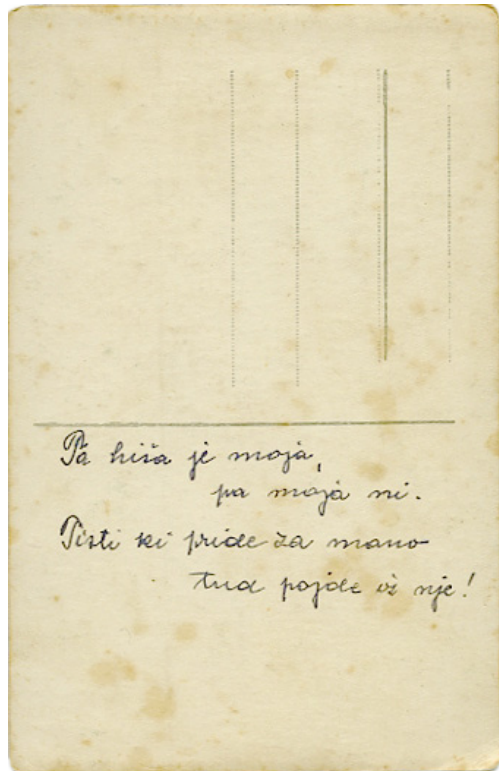 Ta hiša je moja,
pa moja ni.
Tisti ki pride za mano
tud pojde iž nje!